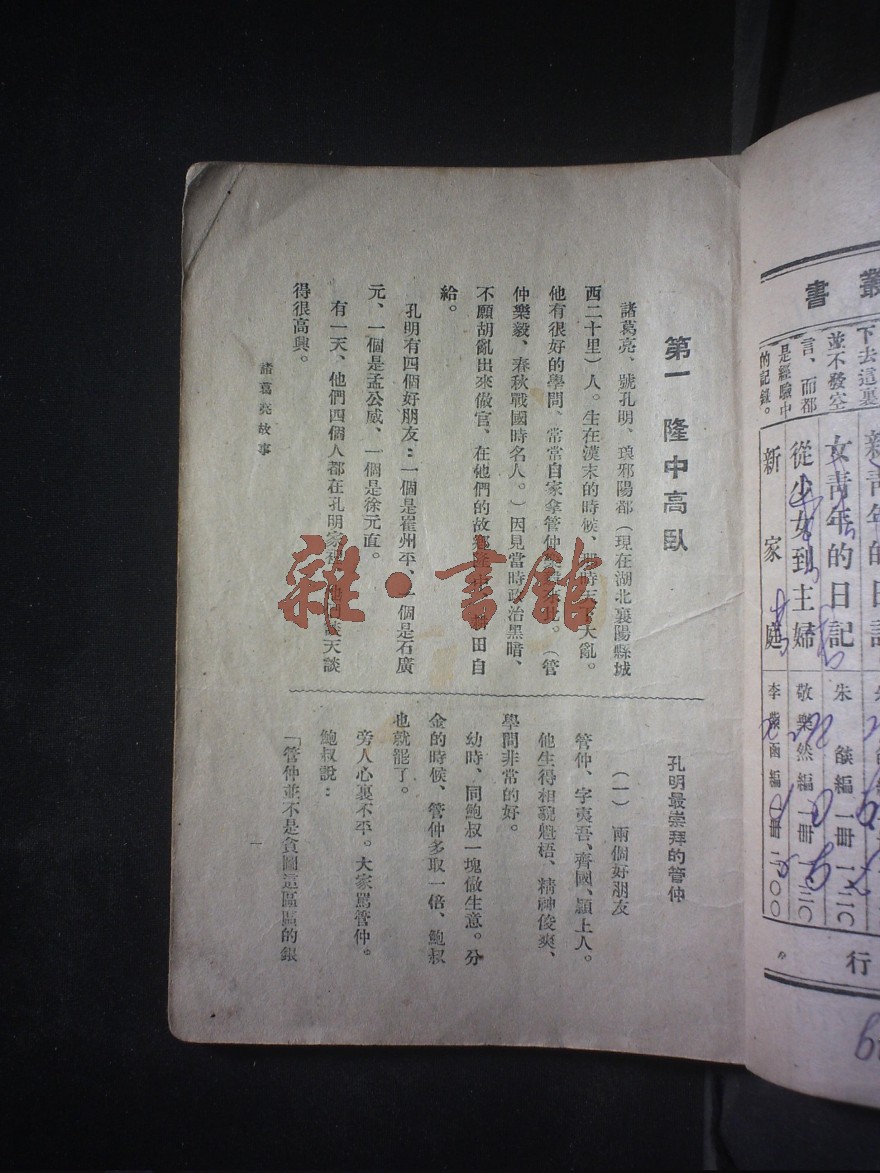 第一 隆中高臥
諸葛亮、號孔明、琅邪陽都(現在湖北襄陽縣城
西二十里)人。生在漢末的時候、那時天下大亂。
他有很好的學問、常常自家拿管仲樂毅來比。(管
仲樂毅、春秋戰國時名人。)因見當時政治黑暗、
不願胡亂出來做官、在他們的故鄉隆中、耕田自
給。
孔明有四個好朋友:一個是崔州平、一個是石廣
元、一個是孟公威、一個是徐元直。
有一天、他們四個人都在孔明家裡、談天談
得很高興。
孔明最崇拜的管仲
(一) 兩個好朋友
管仲、字夷吾、齊國、潁上人。
他生得相貌魁梧、精神俊爽、
學問非常的好。
幼時、同鮑叔一塊做生意。分
金的時候、管仲多取一倍、鮑叔
也就罷了。
旁人心裏不平。大家罵管仲。
鮑叔說:
「管仲並不是貪圖這區區的銀
諸葛亮故事
一
雜·書館
叢書
下去這裏
並不發空
言、而都
是經驗中
的記錄。
新青年的日記
女青年的日記 朱 編 一冊 一二〇
從少女到主婦 敬樂然編 一冊 一三〇
新家庭 李 函編 一冊 二〇〇
行
〃